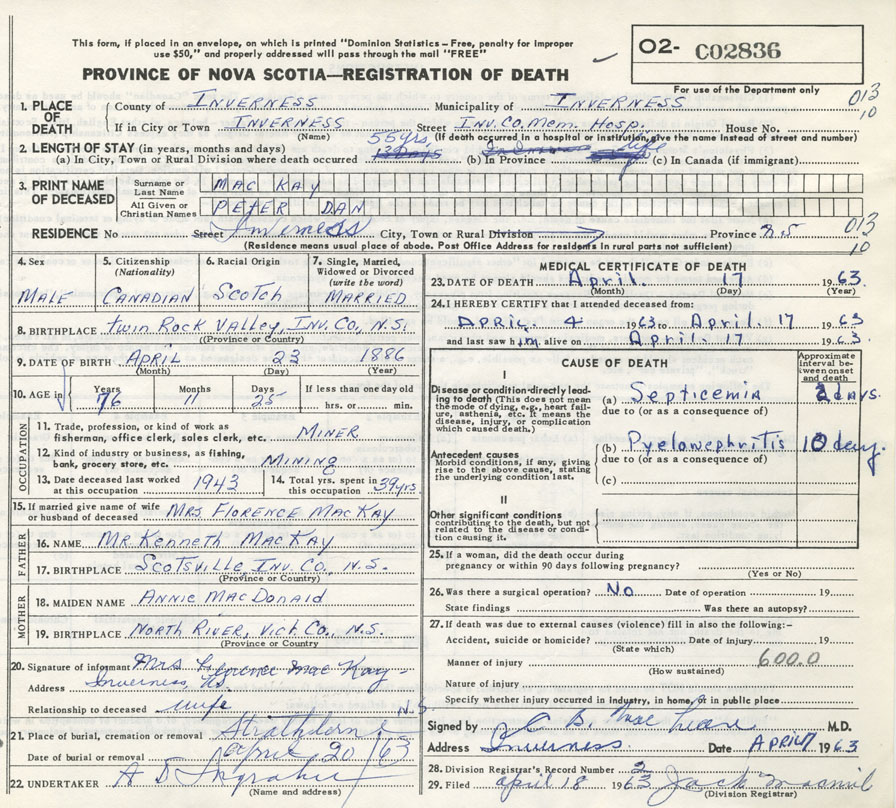 This form, if placed in an envelope, on which is printed "Dominion Statistics – Free, penalty for improper
use $50," and properly addressed will pass through the mail "FREE"
PROVINCE OF NOVA SCOTIA—REGISTRATION OF DEATH
O2- C02836
For use of the Department only
013
10
1. PLACE OF DEATH
County of INVERNESS Municipality of INVERNESS
If in City or Town INVERNESS Street Inv. Co. Mem. Hosp. House No.
(Name) (If death occurred in a hospital or institution, give the name instead of street and number)
2. LENGTH OF STAY (in years, months and days) 55 yrs,
(a) In City, Town or Rural Division where death occurred (b) In Province life (c) In Canada (if immigrant)
3. PRINT NAME OF DECEASED
Surname or Last Name MAC KAY
All Given or Christian Names PETER DAN
RESIDENCE No Street Inverness City, Town or Rural Division Province N S
013
10
(Residence means usual place of abode. Post Office Address for residents in rural parts not sufficient)
4. Sex MALE
5. Citizenship (Nationality) CANADIAN
6. Racial Origin SCOTCH
7. Single, Married, Widowed or Divorced (write the word) MARRIED
8. BIRTHPLACE twin Rock Valley, Inv. Co., N.S.
(Province or Country)
9. DATE OF BIRTH APRIL 23 1886
(Month) (Day) (Year)
10. AGE in Years 76 Months 11 Days 25 If less than one day old hrs. or min.
OCCUPATION
11. Trade, profession, or kind of work as fisherman, office clerk, sales clerk, etc. MINER
12. Kind of industry or business, as fishing, bank, grocery store, etc. MINING
13. Date deceased last worked at this occupation 1943
14. Total yrs. spent in this occupation 39 yrs
15. If married give name of wife or husband of deceased Mrs. Florence MacKay
FATHER
16. NAME Mr. Kenneth MacKay
17. BIRTHPLACE Scotsville Inv. Co., N.S.
(Province or Country)
MOTHER
18. MAIDEN NAME Annie MacDonald
19. BIRTHPLACE North River, Vict. Co., N.S.
(Province or Country
20. Signature of informant Mrs Florence Mac Kay
Address Inverness, N.S.
Relationship to deceased wife
N.S.
21. Place of burial, cremation or removal Strathlorne
Date of burial or removal april 20/63
22. UNDERTAKER A D Ingraham
(Name and address)
MEDICAL CERTIFICATE OF DEATH
23. DATE OF DEATH April. 17 1963.
(Month) (Day) (Year)
24. I HEREBY CERTIFY that I attended deceased from:
APRIL. 4 1963 to April. 17 1963
and last saw him alive on April. 17 1963.
CAUSE OF DEATH
Approximate interval between onset and death
I
Disease or condition directly leading to death (This does not mean the mode of dying, e.g., heart failure, asthenia, etc. It means the disease, injury, or complication which caused death.)
(a) Septicemia 2 days.
due to (or as a consequence of)
Antecedent causes
Morbid conditions, if any, giving rise to the above cause, stating the underlying condition last.
(b) Pyelonephritis 10 days.
due to (or as a consequence of)
(c)
II
Other significant conditions contributing to the death, but not related to the disease or condition causing it.
25. If a woman, did the death occur during pregnancy or within 90 days following pregnancy?
(Yes or No)
26. Was there a surgical operation? No Date of operation 19
State findings Was there an autopsy?
27. If death was due to external causes (violence) fill in also the following:-
Accident, suicide or homicide? Date of injury 19
(State which)
Manner of injury 600.0
(How sustained)
Nature of injury
Specify whether injury occurred in industry, in home, or in public place
Signed by C B. Mac Lean M.D.
Address Inverness Date APRIL 17 1963
28. Division Registrar's Record Number 2
29. Filed april 18 1963 Jack
(Division Registrar)